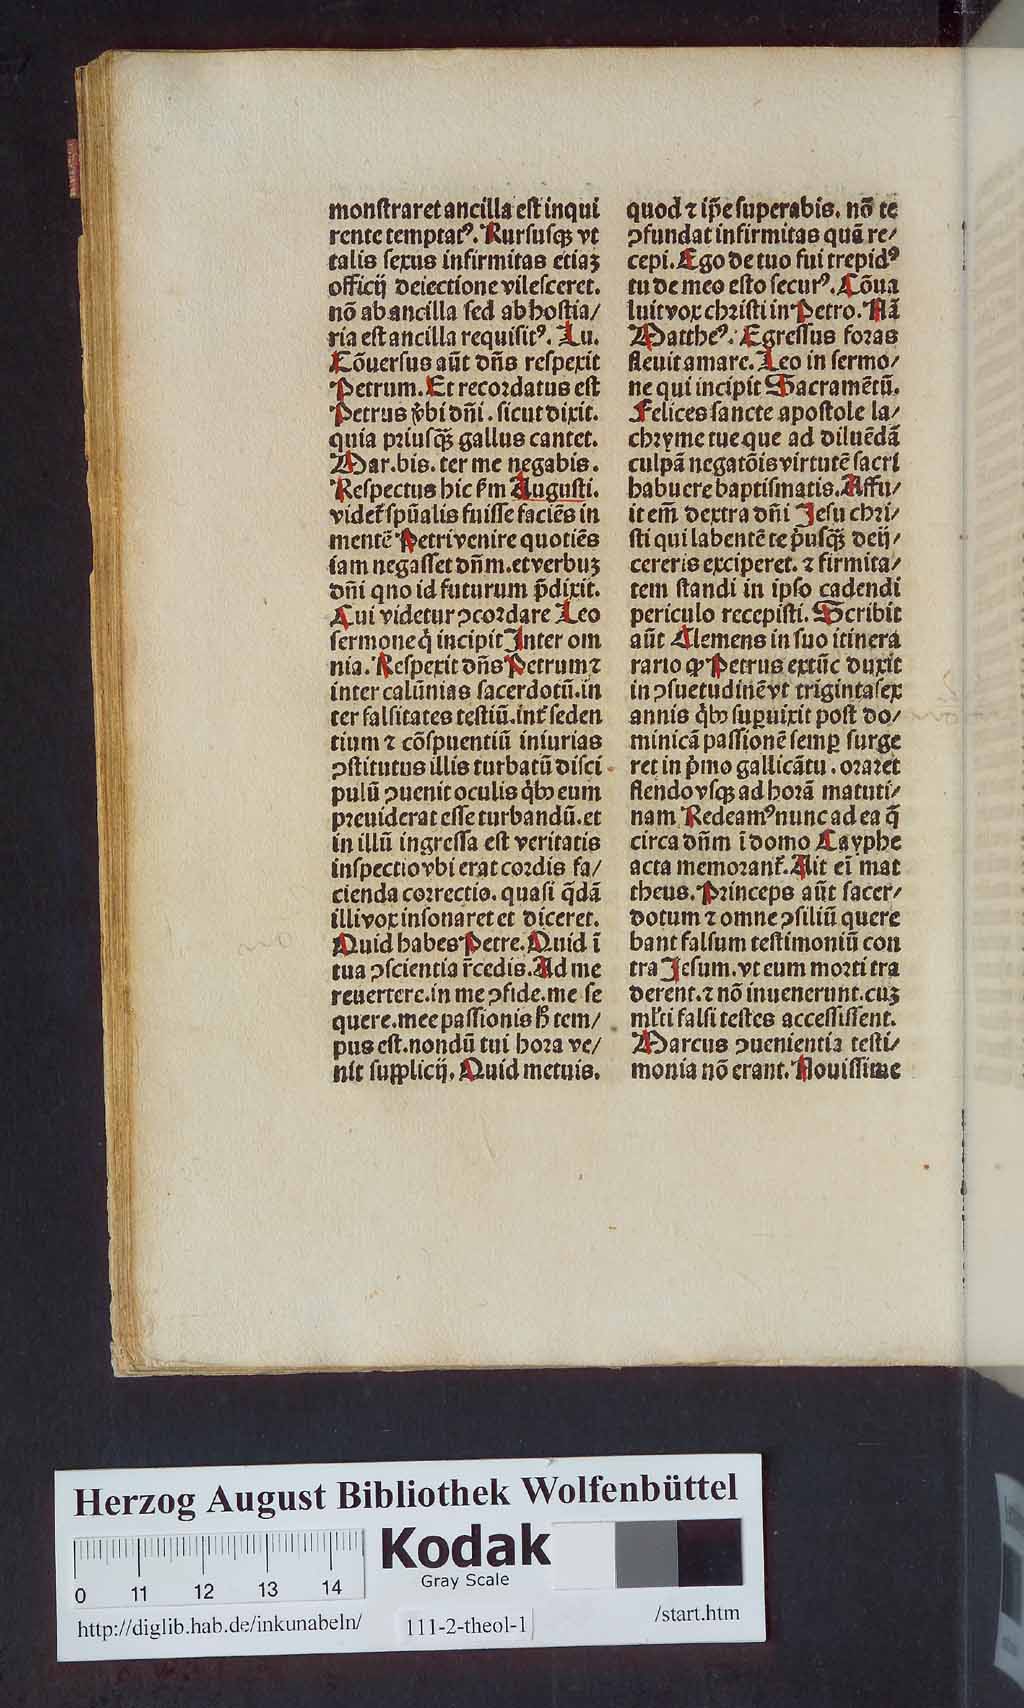 monstraret ancilla est inqui
rente temptatꝰ. Rursusqꝫ vt
talis sexus infirmitas etiaꝫ
officij deiectione vilesceret.
nō ab ancilla sed ab hostia/
ria est ancilla requisitꝰ. Lu.
Cōuersus aūt dn̄s respexit
Petrum. Et recordatus est
Petrus v̄bi dn̄i. sicut dixit.
quia priusqꝫ̄ gallus cantet.
Mar. bis. ter me negabis.
Respectus hic ẜm Augusti.
videt᷑ spūalis fuisse faciēs in
mentē Petri venire quotiēs
iam negasset dn̄m. et verbuꝫ
dn̄i qno id futurum p̄dixit.
Cui videtur ꝯcordare Leo
sermone q̇ incipit Inter om
nia. Respexit dn̄s Petrum ⁊
inter calūnias sacerdotū. in
ter falsitates testiū. int᷑ seden
tium ⁊ cōspuentiū iniurias
ꝯstitutus illis turbatū disci
pulū ꝯuenit oculis q̇bꝫ eum
preuiderat esse turbandū. et
in illū ingressa est veritatis
inspectio vbi erat cordis fa/
cienda correctio. quasi q̄dā
illi vox insonaret et diceret.
Quid habes Petre. Quid ī
tua ꝯscientia r̄cedis. Ad me
reuertere. in me ꝯfide. me se
quere. mee passionis h̄ tem/
pus est. nondū tui hora ve/
nit supplicij. Quid metuis.
quod ⁊ ip̄e superabis. nō te
ꝯfundat infirmitas quā re/
cepi. Ego de tuo fui trepidꝰ
tu de meo esto securꝰ. Cōua
luit vox christi in Petro. Nā
Mattheꝰ. Egressus foras
fleuit amare. Leo in sermo/
ne qui incipit Sacramētū.
Felices sancte apostole la/
chryme tue que ad diluēdā
culpā negatōis virtutē sacri
habuere baptismatis. Affu/
it em̄ dextra dn̄i Jesu chri/
sti qui labentē te p̄usqꝫ̄ deij/
cereris exciperet. ⁊ firmita/
tem standi in ipso cadendi
periculo recepisti. Scribit
aūt Clemens in suo itinera
rario ꝙ Petrus extūc duxit
in ꝯsuetudinē vt triginta sex
annis q̇bꝫ suꝑuixit post do/
minicā passionē semꝑ surge
ret in p̄mo gallicātu. oraret
flendo vsqꝫ ad horā matuti/
nam Redeamꝰ nunc ad ea q̄
circa dn̄m ī domo Cayphe
acta memorant᷑. Ait eī mat
theus. Princeps aūt sacer/
dotum ⁊ omne ꝯsiliū quere
bant falsum testimoniū con
tra Jesum. vt eum morti tra
derent. ⁊ nō inuenerunt. cuꝫ
ml̄ti falsi testes accessissent.
Marcus ꝯuenientia testi/
monia nō erant. Nouissime
Herzog August Bibliothek Wolfenbüttel
Kodak
Gray Scale
0 11 12 13 14
http://diglib.hab.de/inkunabeln/ 111-2-theol-1 /start.htm